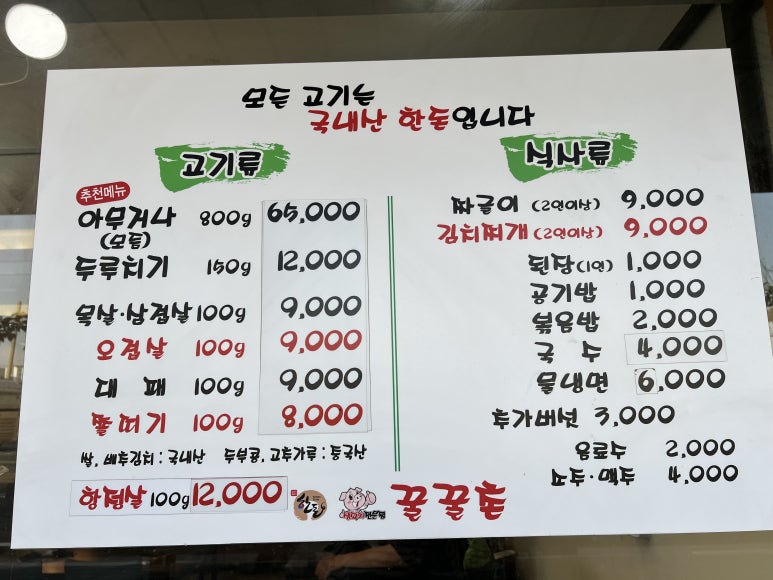 모든 고기는
국내산 한돈입니다
고기류
추천메뉴
아무거나 800g 65,000
(모듬)
두루치기 150g 12,000
목살·삼겹살 100g 9,000
오겹살 100g 9,000
대 패 100g 9,000
쫄띠기 100g 8,000
쌀, 배추김치 : 국내산 두부콩, 고추가루 : 중국산
항정살 100g 12,000
식사류
짜글이 (2인이상) 9,000
김치찌개 (2인이상) 9,000
된장 (1인) 1,000
공기밥 1,000
볶음밥 2,000
국 수 4,000
물냉면 6,000
추가버섯 3,000
음료수 2,000
소주·맥주 4,000
한돈
꿀꿀촌